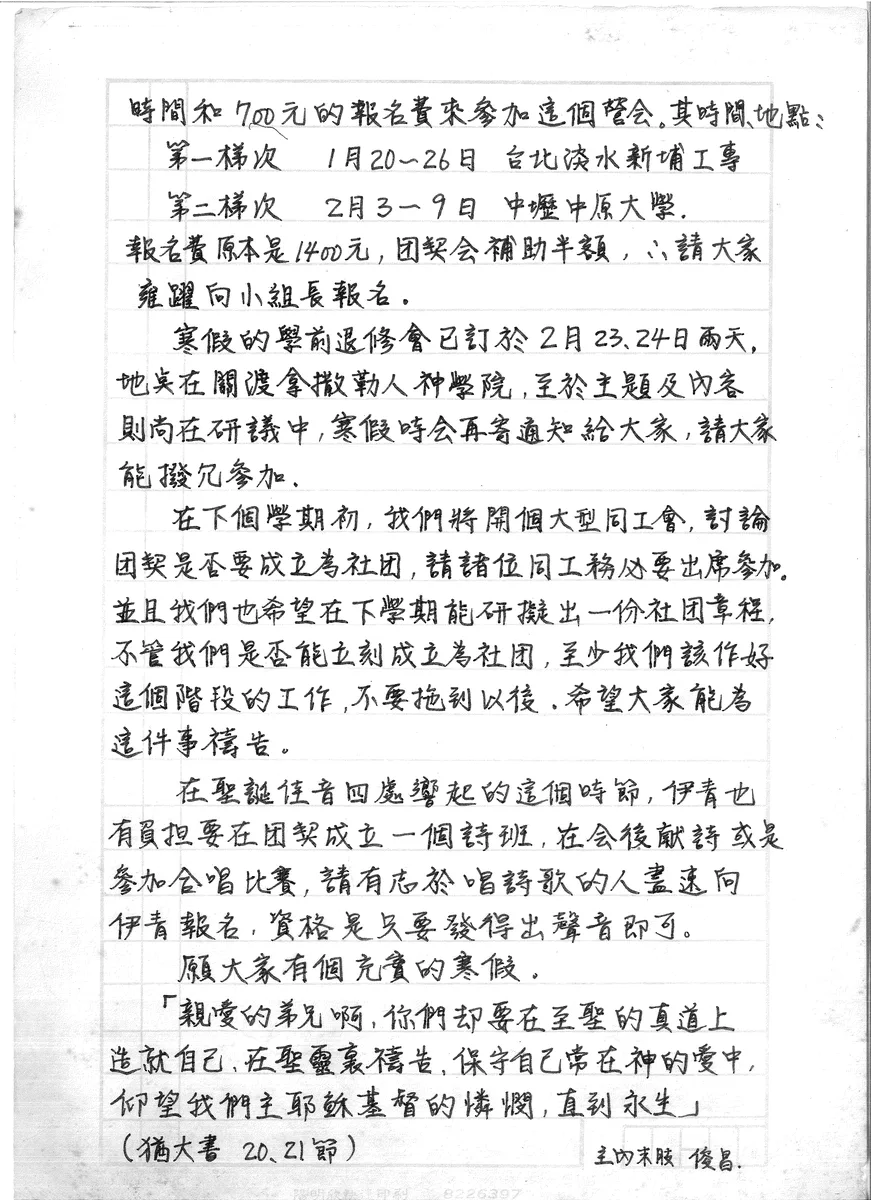 時間和700元的報名費來參加這個營会。其時間、地點:
第一梯次 1月20~26日 台北淡水新埔工專
第二梯次 2月3~9日 中壢中原大學.
報名費原本是1400元,团契会補助半額,∴請大家
雍躍向小組長報名.
寒假的學前退修會已訂於2月23、24日兩天,
地点在關渡拿撒勒人神學院,至於主題及內容
則尚在研議中,寒假時会再寄通知給大家,請大家
能撥冗參加.
在下個學期初,我們將開個大型同工會,討論
团契是否要成立為社团,請諸位同工務必要出席參加。
並且我們也希望在下學期能研擬出一份社团章程,
不管我們是否能立刻成立為社团,至少我們該作好
這個階段的工作,不要拖到以後.希望大家能為
這件事禱告。
在聖誕佳音四處響起的這個時節,伊青也
有負担要在团契成立一個詩班,在会後献詩或是
參加合唱比賽,請有志於唱詩歌的人盡速向
伊青報名,資格是只要發得出聲音即可。
願大家有個充實的寒假.
「親愛的弟兄啊,你們却要在至聖的真道上
造就自己、在聖靈裏禱告、保守自己常在神的愛中,
仰望我們主耶穌基督的憐憫,直到永生」
(猶大書 20、21節)
主內末肢 俊昌.
8226397